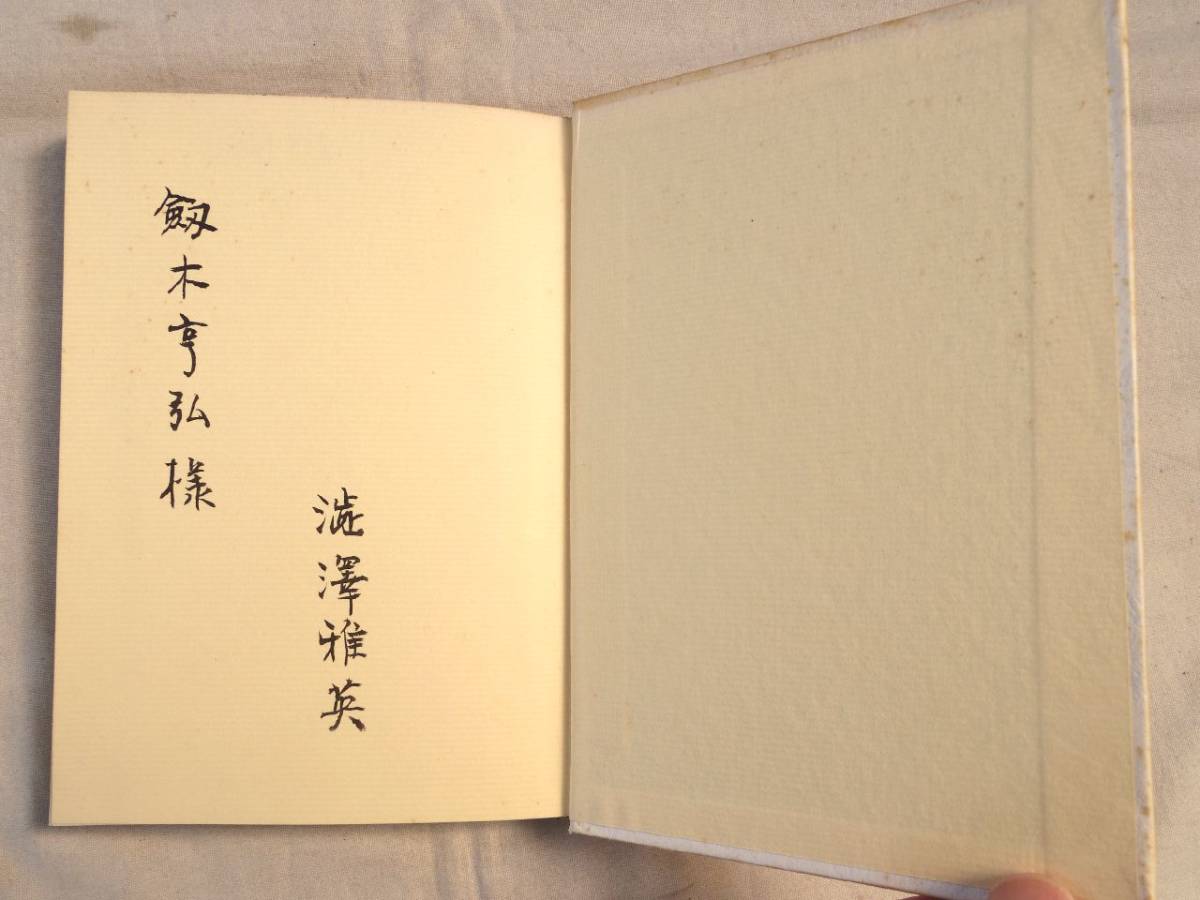 澁澤雅英
劔木亨弘様